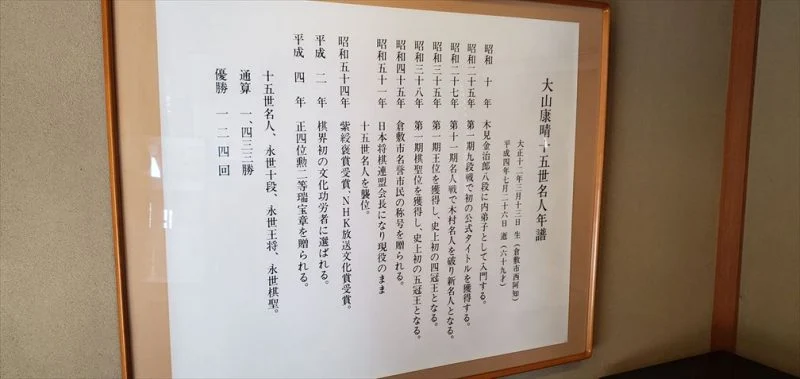 大山康晴十五世名人年譜
大正十二年三月十三日 生(倉敷市西阿知)
平成四年七月二十六日 逝(六十九才)
昭和 十 年 木見金治郎八段に内弟子として入門する。
昭和二十五年 第一期九段戦で初の公式タイトルを獲得する。
昭和二十七年 第十一期名人戦で木村名人を破り新名人となる。
昭和三十五年 第一期王位を獲得し、史上初の四冠王となる。
昭和三十八年 第一期棋聖位を獲得し、史上初の五冠王となる。
昭和四十五年 倉敷市名誉市民の称号を贈られる。
昭和五十一年 日本将棋連盟会長になり現役のまま
十五世名人を襲位。
昭和五十四年 紫綬褒賞受賞、NHK放送文化賞受賞。
平成 二 年 棋界初の文化功労者に選ばれる。
平成 四 年 正四位勲二等瑞宝章を贈られる。
十五世名人、永世十段、永世王将、永世棋聖。
通算 一、四三三勝
優勝 一二四回